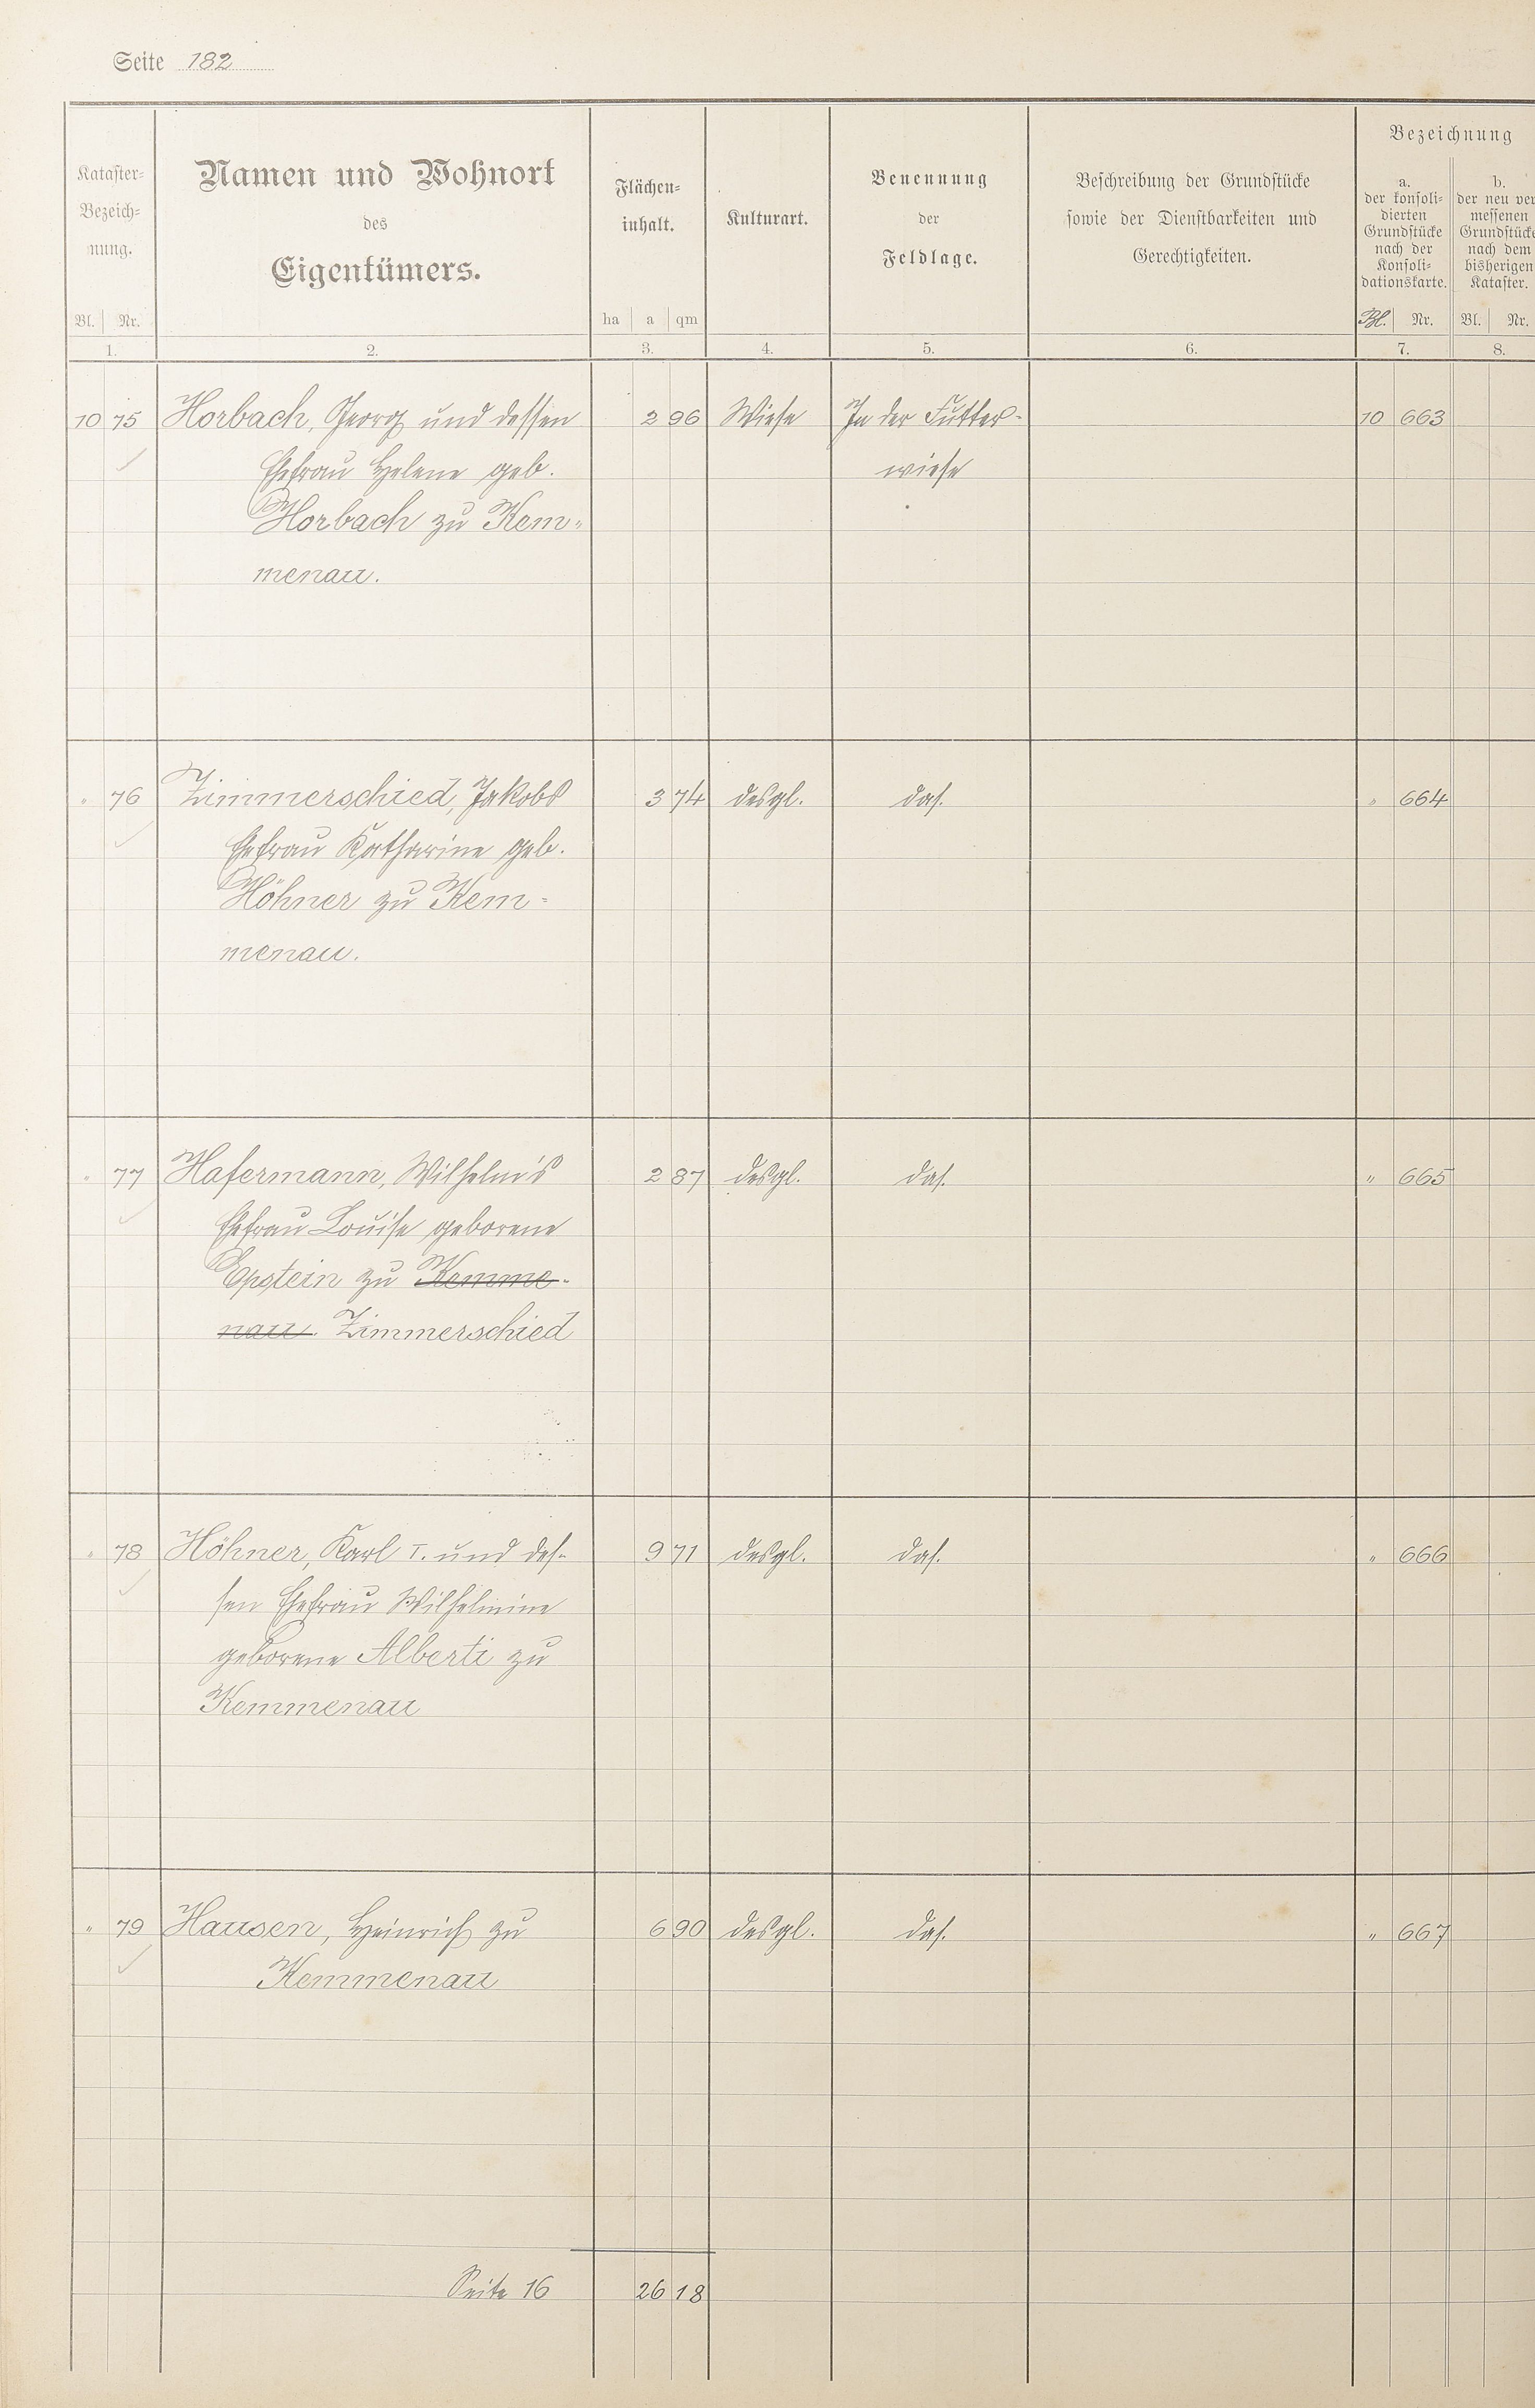 Seite 182
Kataster-
Bezeich-
nung.
Bl. Nr.
1.
Namen und Wohnort
des
Eigentümers.
2.
Flächen-
inhalt.
ha a qm
3.
Kulturart.
4.
Benennung
der
Feldlage.
5.
Beschreibung der Grundstücke
sowie der Dienstbarkeiten und
Gerechtigkeiten.
6.
Bezeichnung
a.
der konsoli-
dierten
Grundstücke
nach der
Konsoli-
dationskarte.
Bl. Nr.
7.
b.
der neu ver
messenen
Grundstücke
nach dem
bisherigen
Kataster.
Bl. Nr.
8.
10 75 Horbach, Georg und dessen 2 96 Wiese In der Futter- 10 663
Ehefrau Helene geb. wiese
Horbach zu Kem-
menau.
" 76 Zimmerschied, Jakobs 3 74 desgl. das. " 664
Ehefrau Katharine geb.
Höhner zu Kem-
menau.
" 77 Hafermann, Wilhelm's 2 87 desgl. das. " 665
Ehefrau Louise geborene
Epstein zu Kemme-
nau. Zimmerschied
" 78 Höhner, Karl I. und des- 9 71 desgl. das. " 666
sen Ehefrau Wilhelmine
geborene Alberti zu
Kemmenau
" 79 Hausen, Heinrich zu 6 90 desgl. das. " 667
Kemmenau
Seite 16 26 18